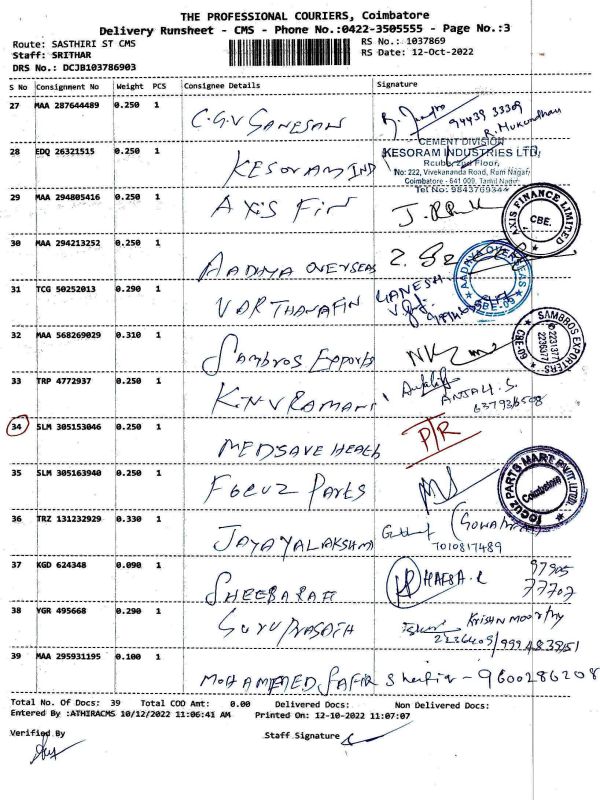 THE PROFESSIONAL COURIERS, Coimbatore
Delivery Runsheet - CMS - Phone No.:0422-3505555 - Page No.:3
Route: SASTHIRI ST CMS RS No.: 1037869
Staff: SRITHAR RS Date: 12-Oct-2022
DRS No.: DCJB103786903
S No Consignment No Weight PCS Consignee Details Signature
27 MAA 287644489 0.250 1 C.G.V GANESAN 94439 33309
R. Mukundhan
28 EDQ 26321515 0.250 1 KESORAM IND
CEMENT DIVISION
KESORAM INDUSTRIES LTD,
2nd Floor,
No: 222, Vivekananda Road, Ram Nagar,
Coimbatore - 641 009, Tamil Nadu
Tel No: 984376934
29 MAA 294805416 0.250 1 AXIS FIN
AXIS FINANCE LIMITED
CBE.
30 MAA 294213252 0.250 1 AADHYA OVERSEAS
AADHYA OVERSEAS
CBE-09
31 TCG 50252013 0.290 1 VARTHANAFIN GANESH
32 MAA 568269029 0.310 1 Sambros Exports
SAMBROS EXPORTERS
2231377
2236277
33 TRP 4772937 0.250 1 K.N.V RAMANI ANJALI. S.
637936508
34 SLM 305153046 0.250 1 MEDSAVE HEALTH P/R
35 SLM 305163940 0.250 1 FOCUZ PARTS
FOCUZ PARTS MART PVT. LTD.
Coimbatore
36 TRZ 131232929 0.330 1 JAYAYALAKSHMI
7010817489
37 KGD 624348 0.090 1 HAFSA.R 97905
77707
38 YGR 495668 0.290 1 GURUPRASATH KRISHNMOORTHY
2236409/9994839151
39 MAA 295931195 0.100 1 MOHAMMED SAFIR - 9600286208
Total No. Of Docs: 39 Total COD Amt: 0.00 Delivered Docs: Non Delivered Docs:
Entered By :ATHIRACMS 10/12/2022 11:06:41 AM Printed On: 12-10-2022 11:07:07
Verified By Staff Signature